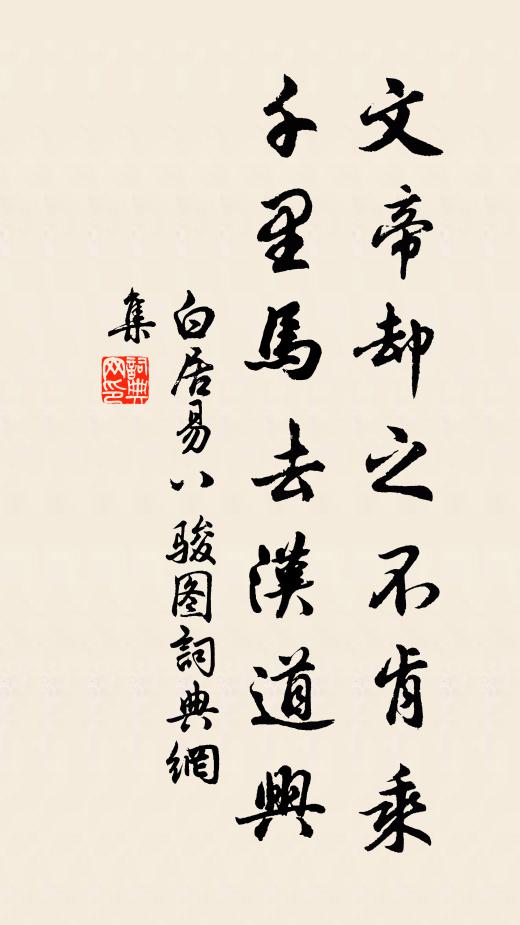 文帝却之不肯乘
千里馬去漢道興
白居易八駿图詞典網
集
詞典
网印